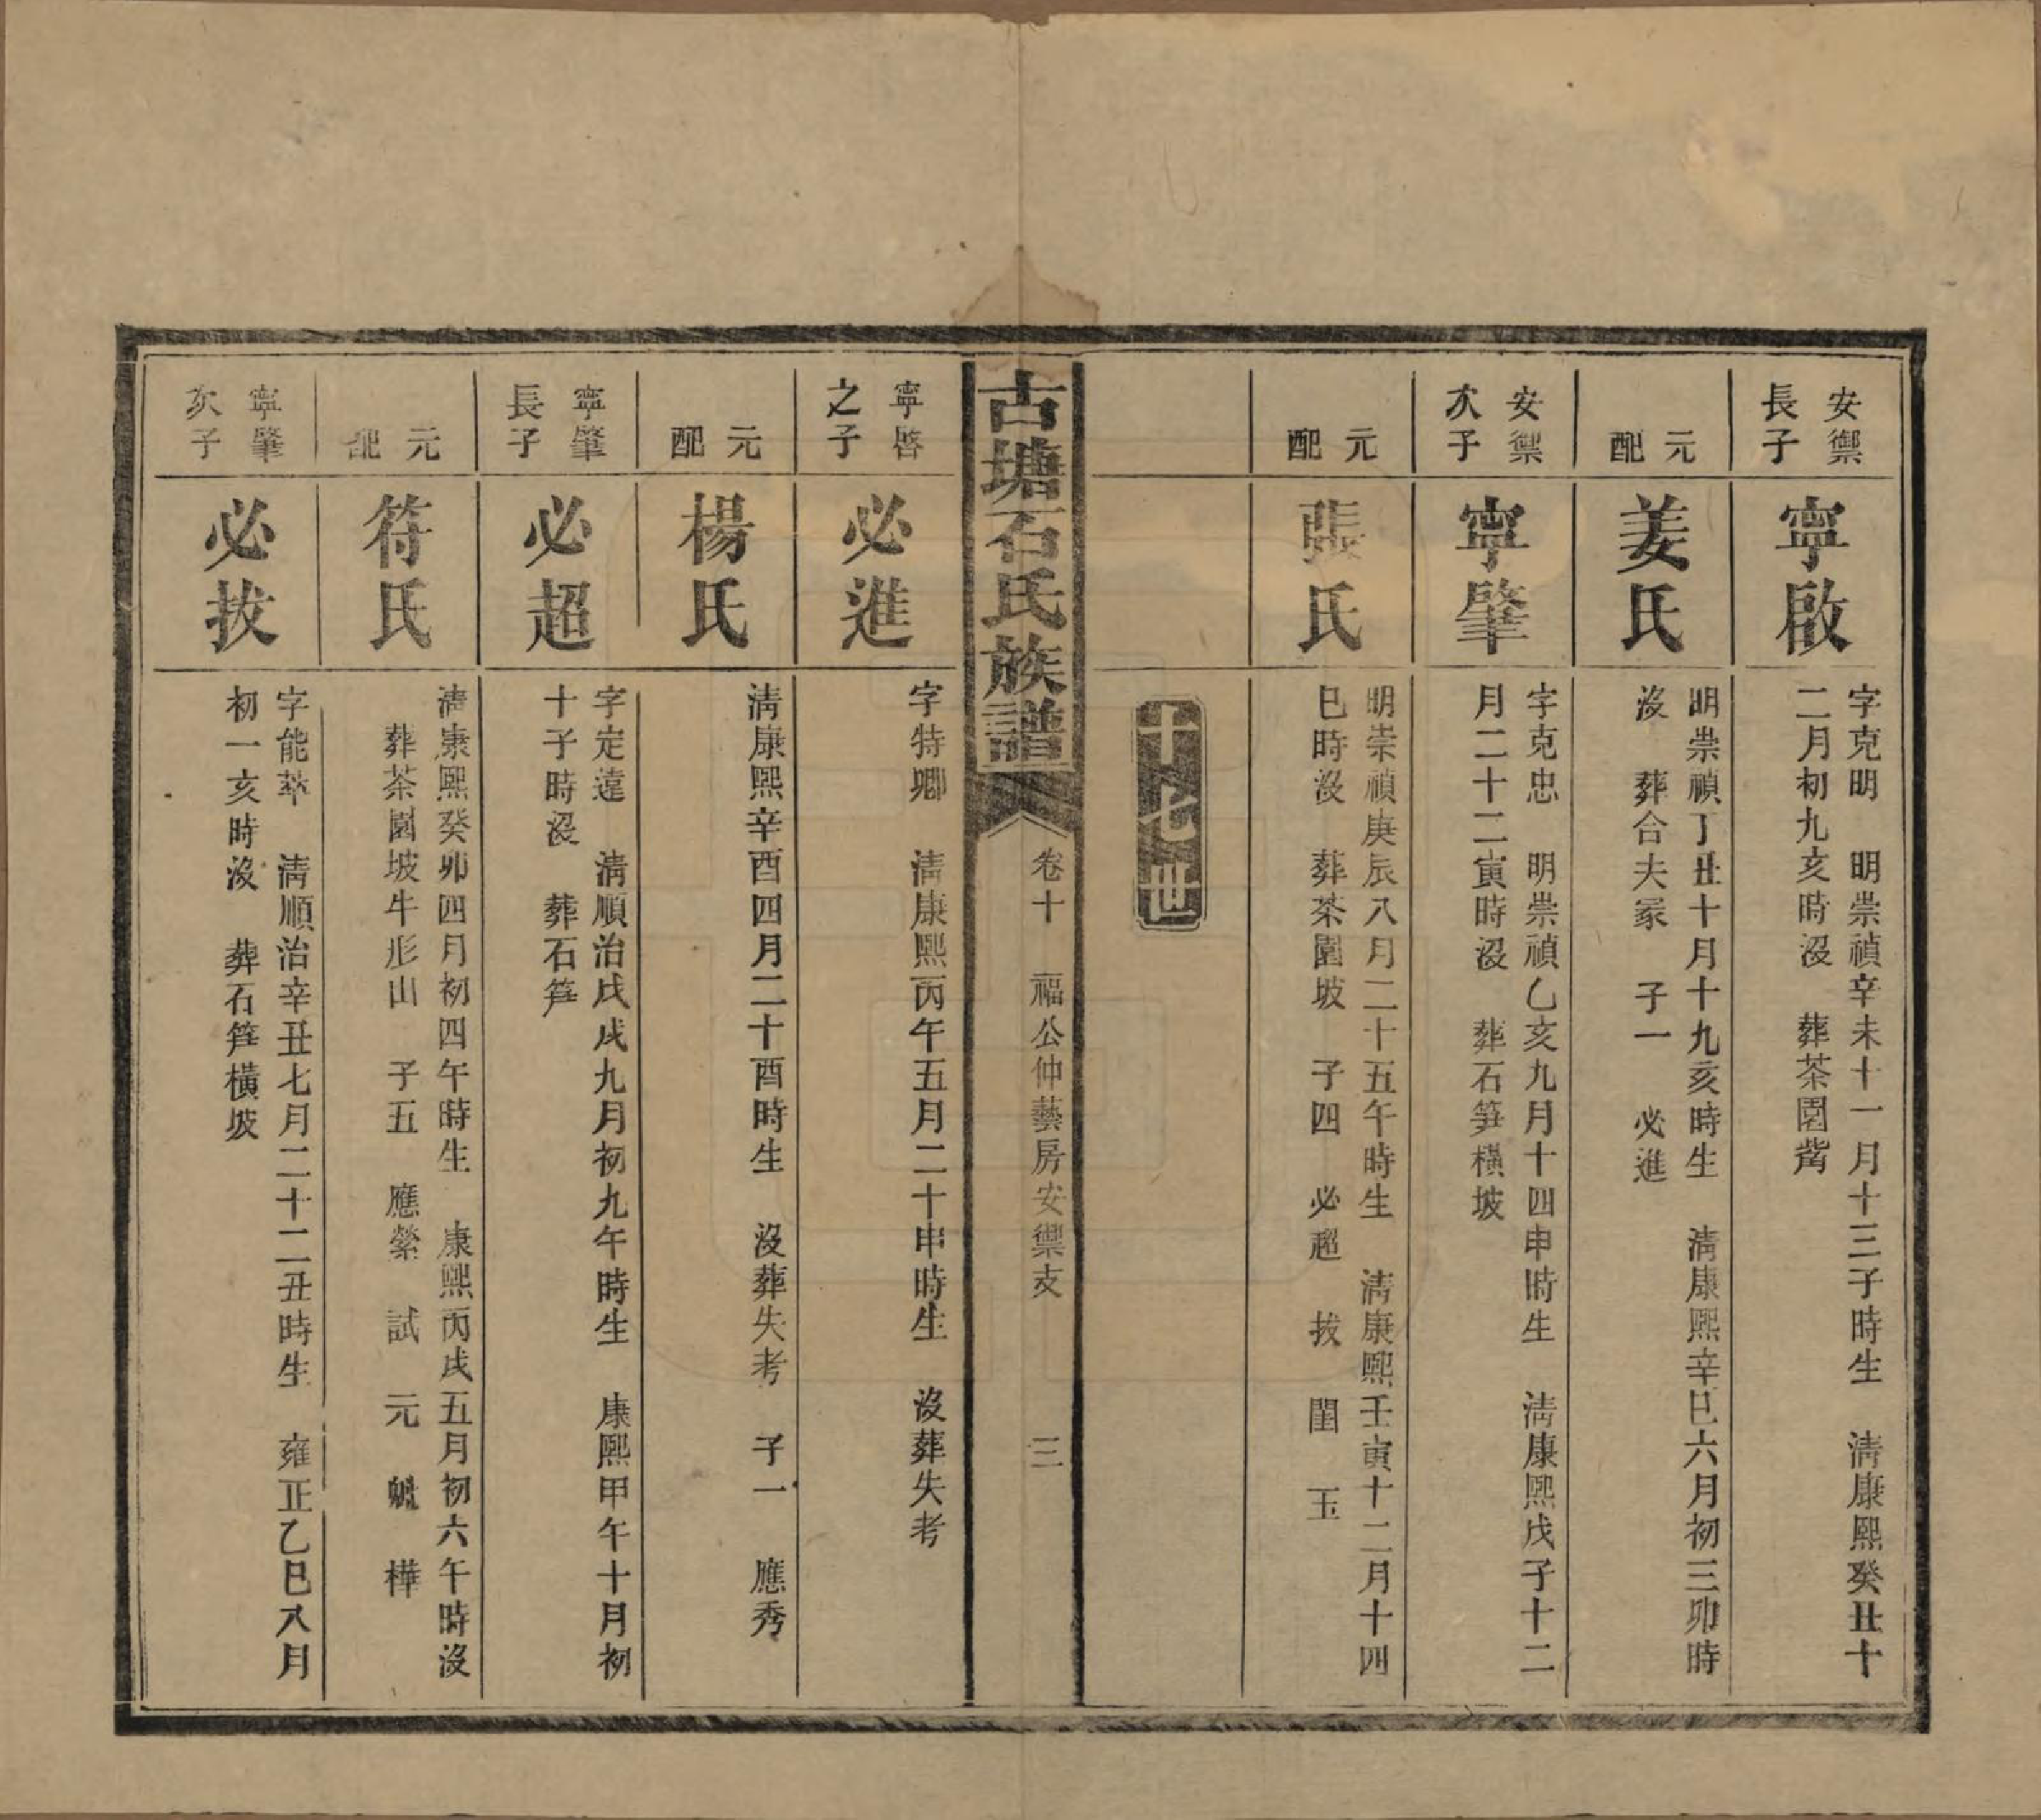 安禦
長子
寧啟
字克明　明崇禎辛未十一月十三子時生　淸康熙癸丑十
二月初九亥時沒　葬茶園嘴
元配
姜氏
明崇禎丁丑十月十九亥時生　淸康熙辛巳六月初三卯時
沒　葬合夫冢　子一　必進
安禦
次子
寧肇
字克忠　明崇禎乙亥九月十四申時生　淸康熙戊子十二
月二十二寅時沒　葬石笋橫坡
元配
張氏
明崇禎庚辰八月二十五午時生　淸康熙壬寅十二月十四
巳時沒　葬茶園坡　子四　必超　拔　閨　玉
十七世
古塘石氏族譜
卷十　福公仲藝房安禦支
三
寧啓
之子
必進
字特卿　淸康熙丙午五月二十申時生　沒葬失考
元配
楊氏
淸康熙辛酉四月二十酉時生　沒葬失考　子一　應秀
寧肇
長子
必超
字定遠　淸順治戊戌九月初九午時生　康熙甲午十月初
十子時沒　葬石笋
元配
符氏
淸康熙癸卯四月初四午時生　康熙丙戌五月初六午時沒
葬茶園坡牛形山　子五　應縈　試　元　魁　樺
寧肇
次子
必拔
字能萃　淸順治辛丑七月二十二丑時生　雍正乙巳八月
初一亥時沒　葬石笋橫坡